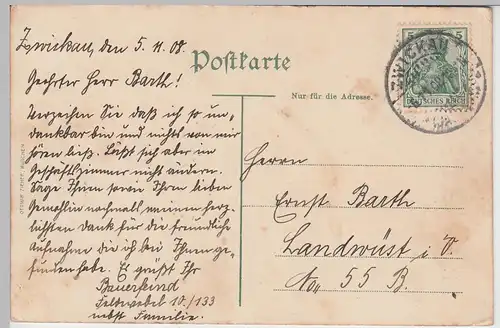 Zwickau, den 5. 11. 08.
Geehrter Herr Barth!
Verzeihen Sie daß ich so un-
dankbar bin und nichts von mir
hören ließ. Läßt sich aber im
Geschäftszimmer nicht ändern.
Sage Ihnen sowie Ihrer lieben
Gemahlin nochmals meinen herz-
lichsten Dank für die freundliche
Aufnahme die ich bei Ihnen ge-
funden habe. Es grüßt Ihr
Bauerfeind
Feldwebel 10./133
nebst Familie.
Postkarte
Nur für die Adresse.
5 5
ZWICKAU
DEUTSCHES REICH
Herrn
Ernst Barth
Landwüst i. V.
No. 55 B.